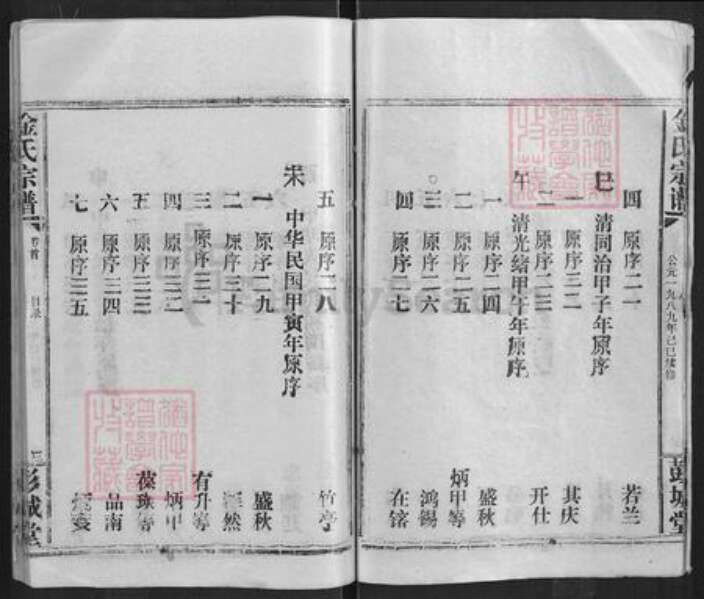 金氏宗谱
公元一九八九年己巳续修
彭城堂
四 原序二一 若兰
巳 清同治甲子年原序
一 原序三二 其庆
二 原序二三 开仕
午 清光绪甲午年原序
一 原序二四 盛秋
二 原序二五 炳甲等
三 原序二六 鸿锡
四 原序二七 在镕
五 原序二八 竹亭
未 中华民国甲寅年原序
一 原序二九 盛秋
二 原序三十 然
三 原序三一 有升等
四 原序三二 炳甲
五 原序三三 葆珠等
六 原序三四 品南
七 原序三五
金氏宗譜
卷首
目录
三
彭城堂